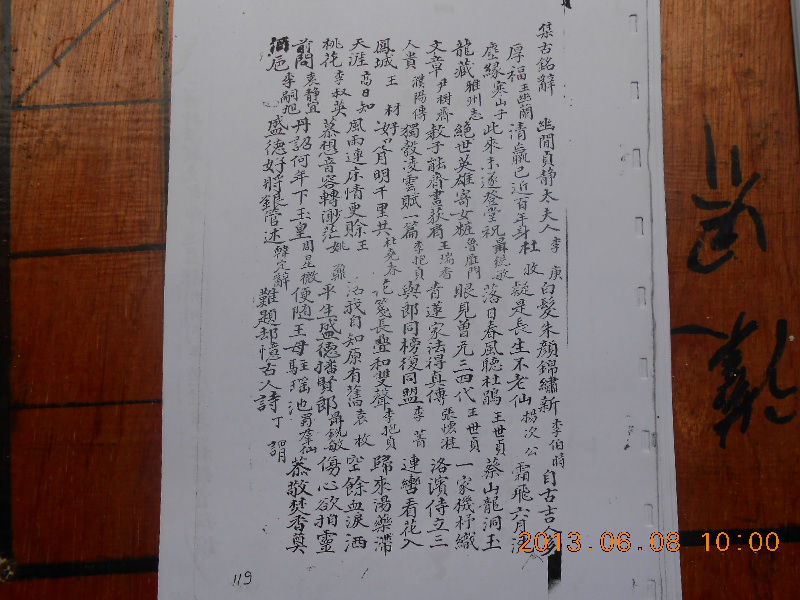 集古銘辭 幽閒貞靜太夫人李庚白髮朱顔錦繡新李伯時自古吉人多
厚福王幽蘭清羸已近百年身杜牧疑是長生不老仙楊次公霜飛六月
塵緣寒山子此來未遂登堂祝聶銳敏落日春風聽杜鵑王世貞蔡山龍洞玉
龍藏雅州志絕世英雄寄女粧魯雁門眼見曾元三四代王世貞一家機杼織
文章尹樹齋教子能看書荻王瑞者青蓮家法得真傳張懷溎洛濱侍立三
人貴濮陽傳獨毅凌雲賦一篇李抱貞與郎同榜復同盟李菁連轡看花入
鳳城王材好月明千里共杜堯春花箋長疊和雙聲李抱貞歸來湯藥滯
天涯高日知風雨連床情更賒王我自知原有舊袁枚空餘血淚洒
桃花李叔英慕想音容轉渺茫姚鼐平生盛德播賢郎聶銳敏傷心欲拍靈
前問袁靜宜丹詔何年下玉皇周星徵便隨王母駐瑶池蜀羣仙恭敬焚香奠
酒卮李嗣旭盛德好將銀管述韓定辭難題却憶古人詩丁謂
119
2013.06.08 10:00